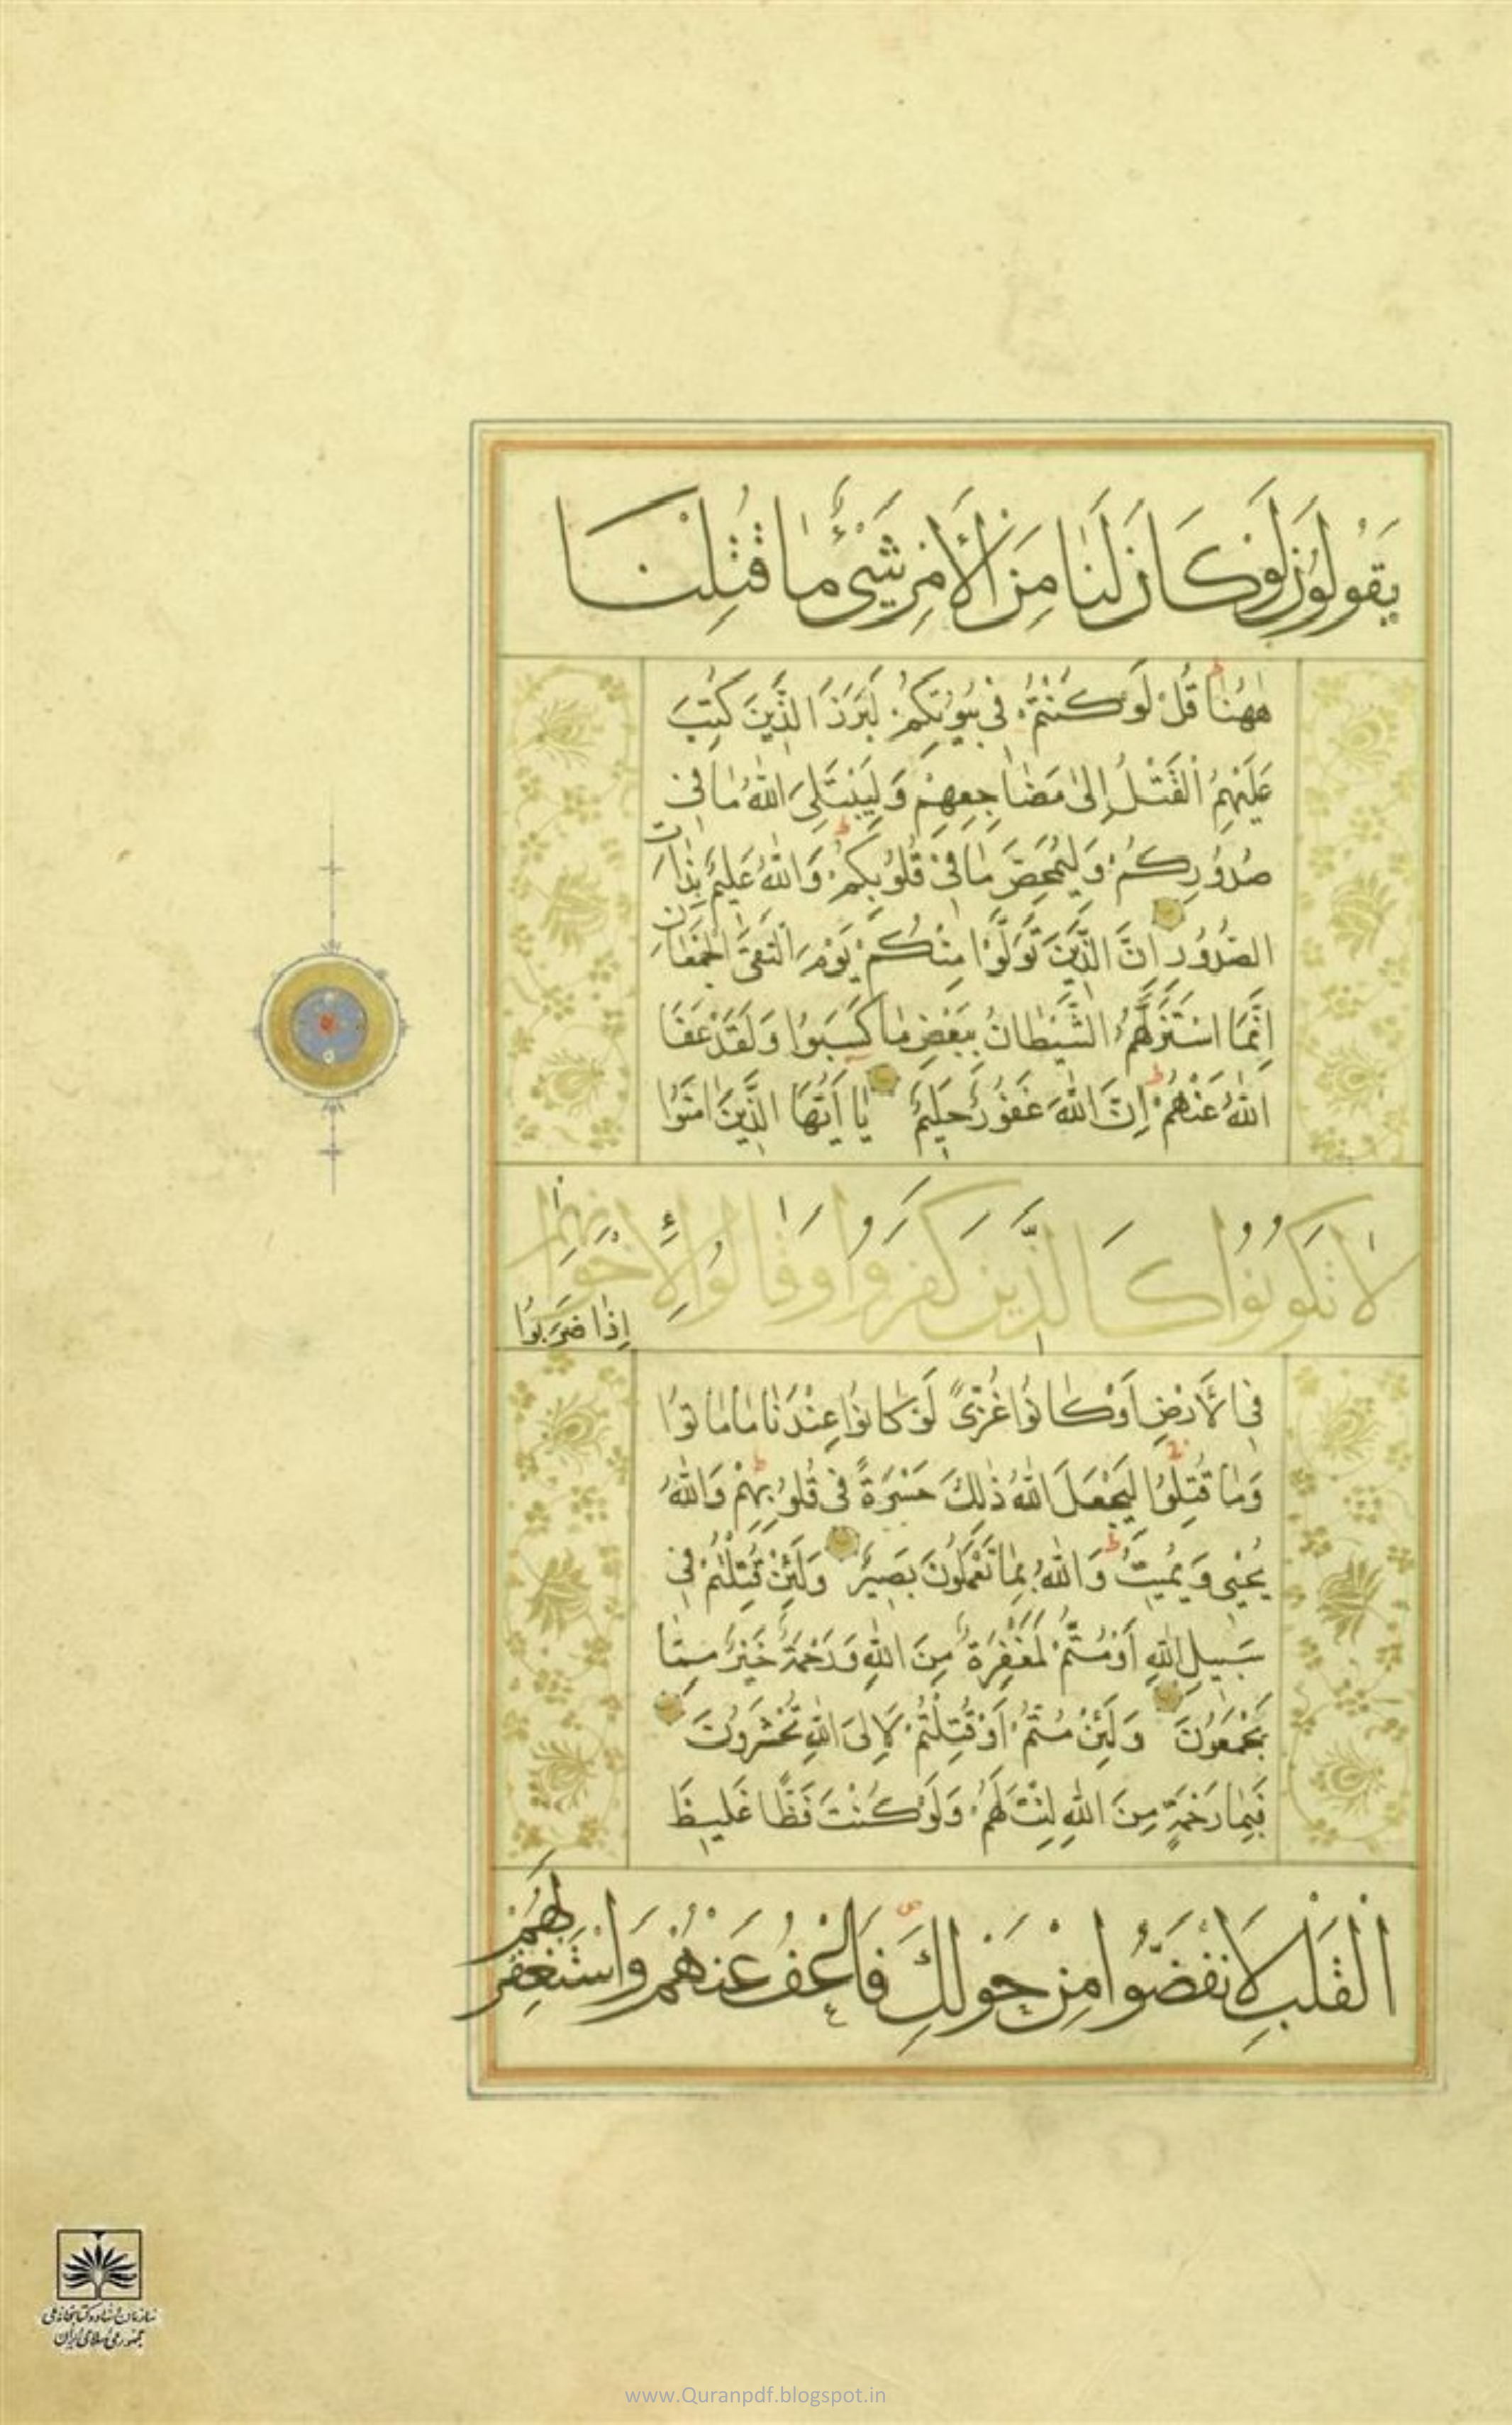 يَقُولُونَ لَوْ كَانَ لَنَا مِنَ الْأَمْرِ شَيْءٌ مَا قُتِلْنَا
هٰهُنَا قُلْ لَوْ كُنْتُمْ فِي بُيُوتِكُمْ لَبَرَزَ الَّذِينَ كُتِبَ
عَلَيْهِمُ الْقَتْلُ إِلَىٰ مَضَاجِعِهِمْ وَلِيَبْتَلِيَ اللّٰهُ مَا فِي
صُدُورِكُمْ وَلِيُمَحِّصَ مَا فِي قُلُوبِكُمْ وَاللّٰهُ عَلِيمٌ بِذَاتِ
الصُّدُورِ إِنَّ الَّذِينَ تَوَلَّوْا مِنْكُمْ يَوْمَ الْتَقَى الْجَمْعَانِ
إِنَّمَا اسْتَزَلَّهُمُ الشَّيْطَانُ بِبَعْضِ مَا كَسَبُوا وَلَقَدْ عَفَا
اللّٰهُ عَنْهُمْ إِنَّ اللّٰهَ غَفُورٌ حَلِيمٌ يَا أَيُّهَا الَّذِينَ اٰمَنُوا
لَا تَكُونُوا كَالَّذِينَ كَفَرُوا وَقَالُوا لِإِخْوَانِهِمْ
إِذَا ضَرَبُوا
فِي الْأَرْضِ أَوْ كَانُوا غُزًّى لَوْ كَانُوا عِنْدَنَا مَا مَاتُوا
وَمَا قُتِلُوا لِيَجْعَلَ اللّٰهُ ذٰلِكَ حَسْرَةً فِي قُلُوبِهِمْ وَاللّٰهُ
يُحْيِي وَيُمِيتُ وَاللّٰهُ بِمَا تَعْمَلُونَ بَصِيرٌ وَلَئِنْ قُتِلْتُمْ فِي
سَبِيلِ اللّٰهِ أَوْ مُتُّمْ لَمَغْفِرَةٌ مِنَ اللّٰهِ وَرَحْمَةٌ خَيْرٌ مِمَّا
يَجْمَعُونَ وَلَئِنْ مُتُّمْ أَوْ قُتِلْتُمْ لَإِلَى اللّٰهِ تُحْشَرُونَ
فَبِمَا رَحْمَةٍ مِنَ اللّٰهِ لِنْتَ لَهُمْ وَلَوْ كُنْتَ فَظًّا غَلِيظَ
الْقَلْبِ لَانْفَضُّوا مِنْ حَوْلِكَ فَاعْفُ عَنْهُمْ وَاسْتَغْفِرْ لَهُمْ
سازمان اسناد و کتابخانه ملی
جمهوری اسلامی ایران
www.Quranpdf.blogspot.in